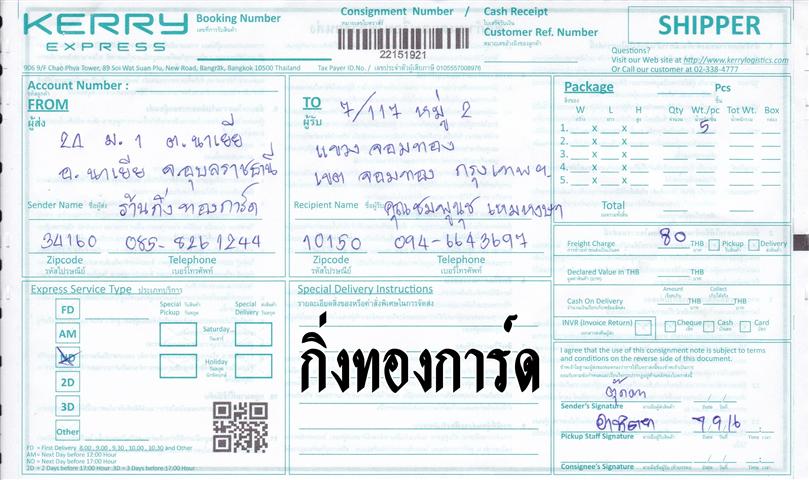 KERRY
EXPRESS
Booking Number
เลขที่การรับสินค้า
Consignment Number / Cash Receipt
หมายเลขใบตราส่ง ใบเสร็จรับเงิน
22151921
Customer Ref. Number
หมายเลขอ้างอิงของลูกค้า
SHIPPER
Questions?
Visit our Web site at http://www.kerrylogistics.com
Or Call our customer at 02-338-4777
906 9/F Chao Phya Tower, 89 Soi Wat Suan Plu, New Road, Bangrak, Bangkok 10500 Thailand
Tax Payer ID.No. / เลขประจำตัวผู้เสียภาษี 0105557008976
Account Number :
FROM
ผู้ส่ง
21 ม. 1 ต.นาเยีย
อ.นาเยีย จ.อุบลราชธานี
Sender Name ชื่อผู้ส่ง ร้านกิ่งทองการ์ด
34160 085-8261244
Zipcode Telephone
รหัสไปรษณีย์ เบอร์โทรศัพท์
TO 7/117 หมู่ 2
ผู้รับ
แขวง จอมทอง
เขต จอมทอง กรุงเทพฯ
Recipient Name ชื่อผู้รับ คุณชมพูนุช เหมหงษา
10150 094-6643697
Zipcode Telephone
รหัสไปรษณีย์ เบอร์โทรศัพท์
Package Pcs
W L H Qty Wt./pc Tot Wt. Box
1. x x 5
2. x x
3. x x
4. x x
5. x x
Total
Freight Charge 80 THB Pickup Delivery
Declared Value in THB THB
Amount Collect
Cash On Delivery THB
INVR (Invoice Return) Cheque Cash Card
Express Service Type ประเภทบริการ
Special Pickup Special Delivery
FD
AM
ND
2D
3D
Other
Saturday
วันเสาร์
Holiday
วันหยุด
FD = First Delivery 8.00 , 9.00 , 9.30 , 10.00 , 10.30 and Other
AM= Next Day before 12:00 Hour
ND = Next Day before 17:00 Hour
2D = 2 Days before 17:00 Hour 3D = 3 Days before 17:00 Hour
Special Delivery Instructions
รายละเอียดสิ่งของหรือคำสั่งพิเศษในการจัดส่ง
กิ่งทองการ์ด
I agree that the use of this consignment note is subject to terms
and conditions on the reverse side of this document.
Sender's Signature Date วันที่
7.9.16
Pickup Staff Signature Date วันที่ Time เวลา
Consignee's Signature Date วันที่ Time เวลา